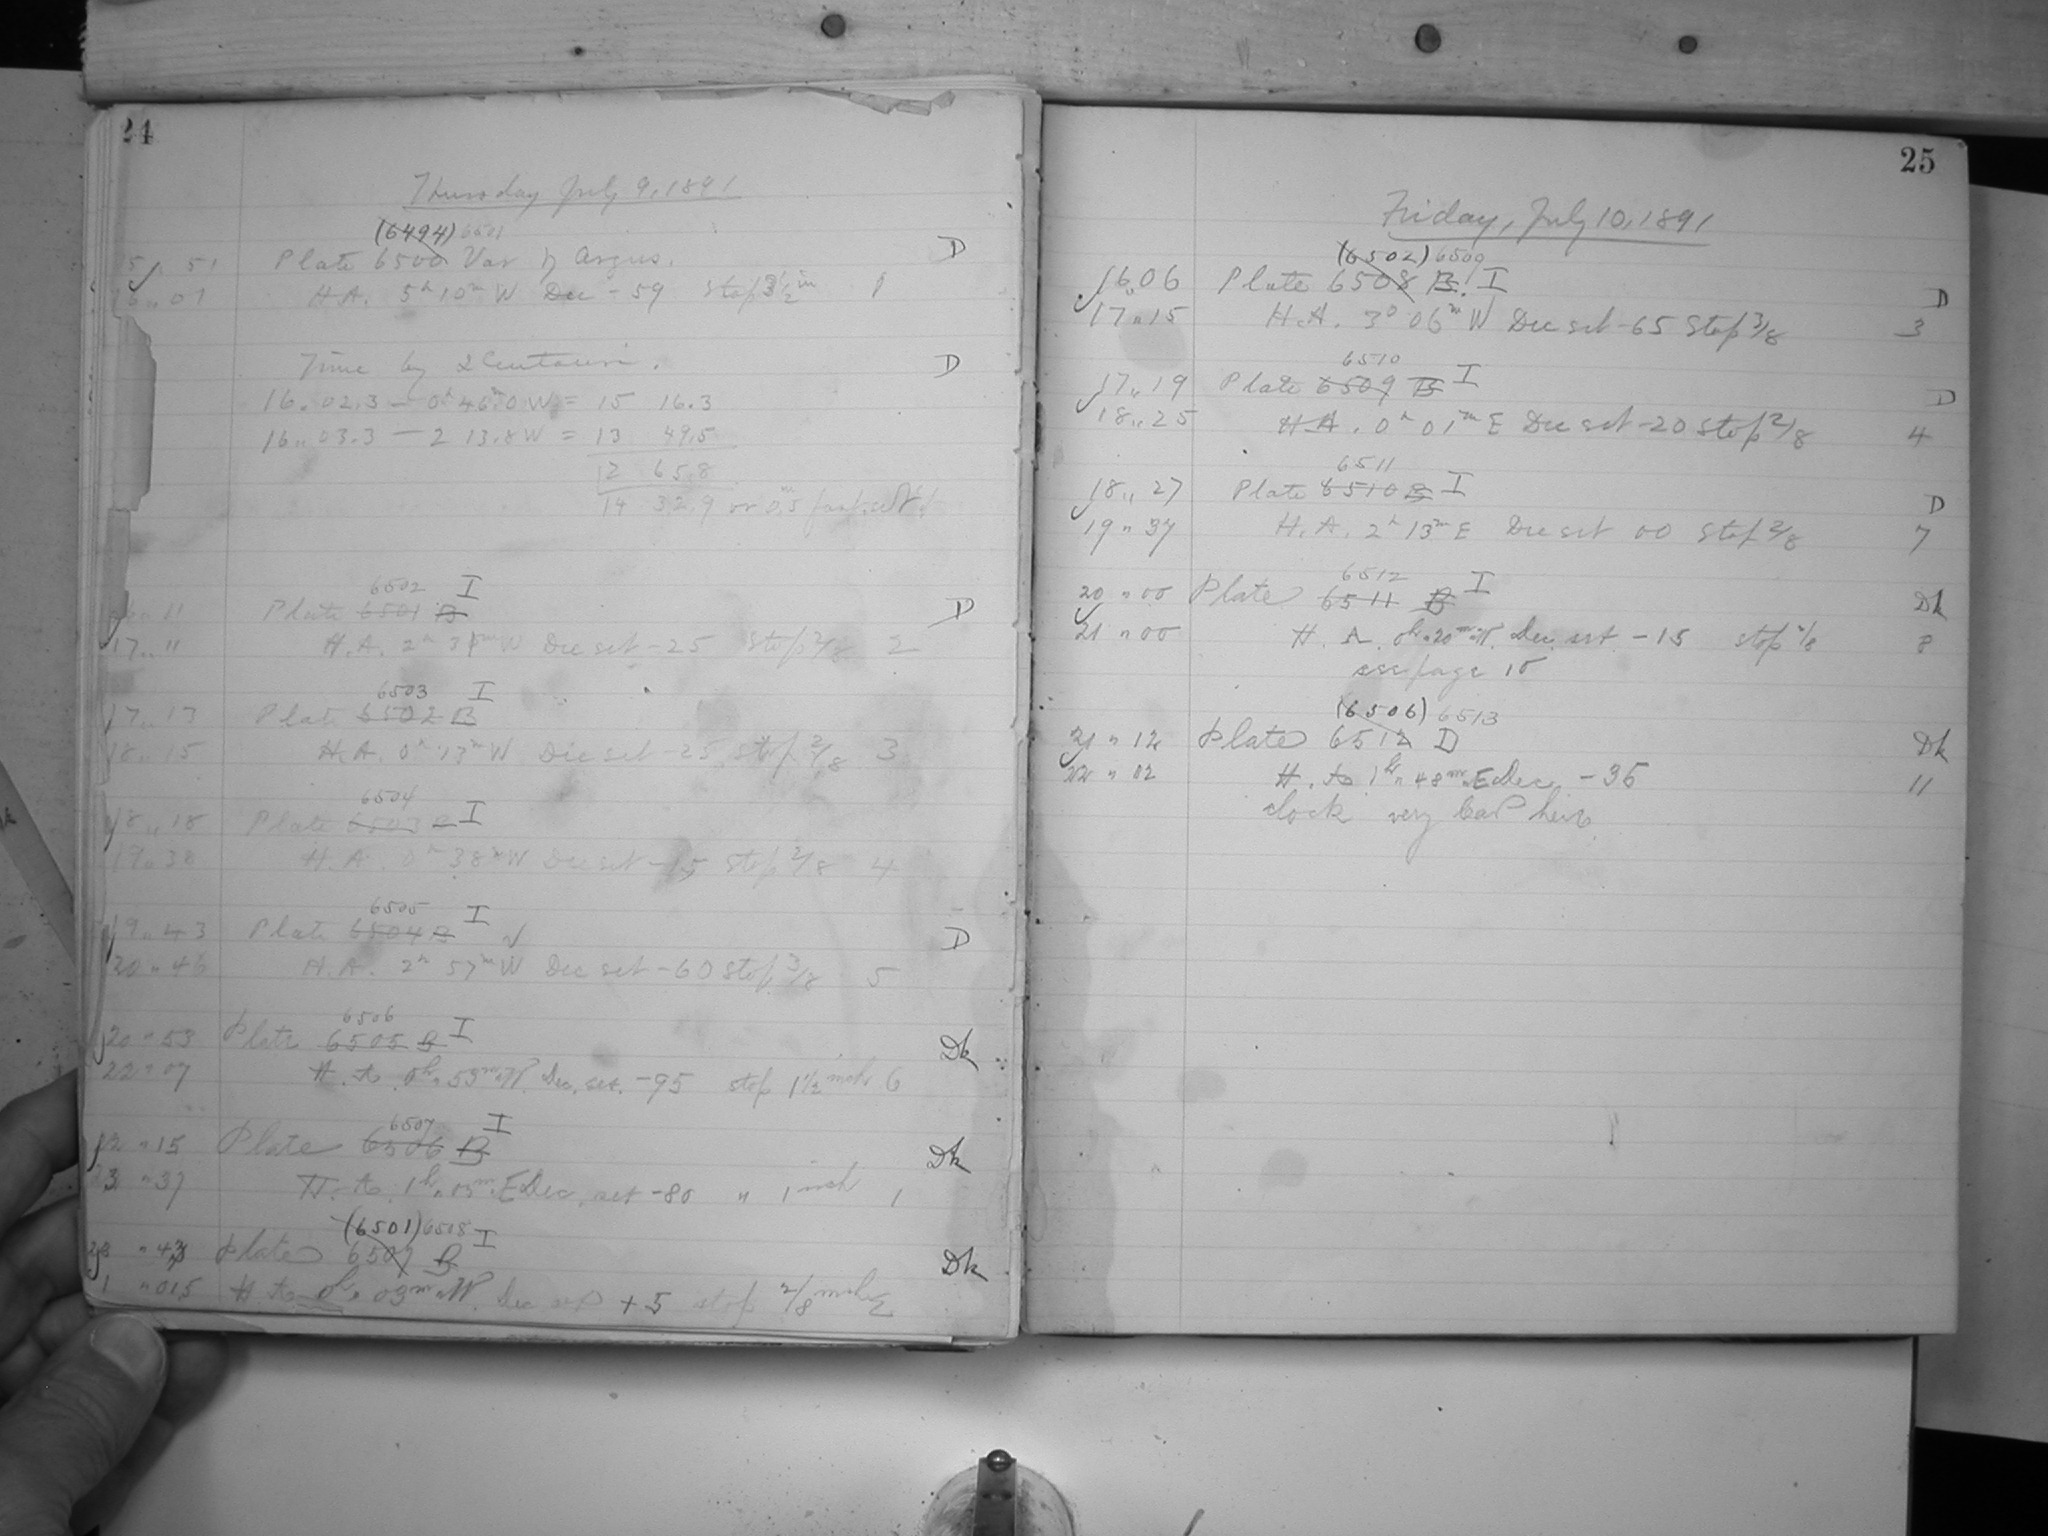 24
Thursday July 9, 1891
(6494) 6501
15 " 51 Plate 6500 Var η Argus. D
16 " 01 H.A. 5h 10m W Dec -59 Stop 3½ in 1
Time by α Centauri. D
16 " 02.3 — 0h 46m.0 W = 15 16.3
16 " 03.3 — 2 13.8 W = 13 49.5
2 65.8
14 32.9 or 0m.5
6502 I
16 " 11 Plate 6501 B D
17 " 11 H.A. 2h W Dec set -25 Stop 2/8 2
6503 I
17 " 13 Plate 6502 B
18 " 15 H.A. 0h 13m W Dec set -25 Stop 2/8 3
6504
18 " 18 Plate 6503 B I
19 " 38 H.A. 0h 38m W Dec set -15 Stop 2/8 4
6505 I
19 " 43 Plate 6504 B D
20 " 46 H.A. 2h 57m W Dec set -60 Stop 3/8 5
6506
20 " 53 Plate 6505 B I Dk
22 " 07 H. A. 0h " 53m " W. Dec. set. -95 stop 1½ inch 6
6507 I
22 " 15 Plate 6506 B Dk
23 " 37 H. A. 1h " 13m " E Dec. set -80 " 1 inch 1
(6501) 6508 I
23 " 43 Plate 6507 B Dk
1 " 015 H. A. 0h " 03m " W. Dec set +5 stop 2/8 inch 2
25
Friday, July 10, 1891
(6502) 6509
16 " 06 Plate 6508 B. I D
17 " 15 H.A. 3h 06m W Dec set -65 Stop 3/8 3
6510
17 " 19 Plate 6509 B I D
18 " 25 H.A. 0h 01m E Dec set -20 Stop 2/8 4
6511
18 " 27 Plate 6510 B I D
19 " 37 H.A. 2h 13m E Dec set 00 Stop 2/8 7
6512 I
20 " 00 Plate 6511 B Dk
21 " 00 H. A. 0h " 20m " W. Dec. set -15 stop 2/8 8
see page 15
(6506) 6513
21 " 12 Plate 6512 D Dk
22 " 02 H. A. 1h " 48m " E Dec. -35 11
clock very bad here